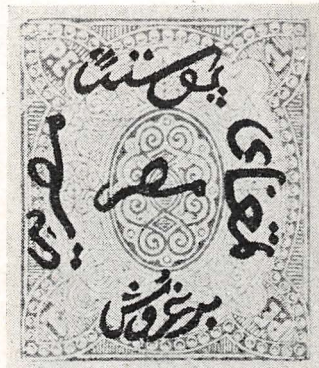 پوستهٔ
تمغای
مصر
مصریه
بر غروش